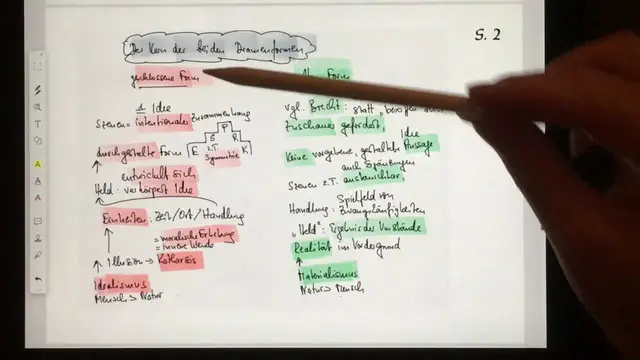 S. 2
Der Kern der beiden Dramenformen
geschlossene Form
Form
1 Idee
Szenen = intentionaler Zusammenhang
E S P R K
z.T. Symmetrie
durchgestaltete Form
entwickelt sich
Held: verkörpert Idee
Einheiten: Zeit/Ort/Handlung
= moralische Erhebung
= innere Wende
Illusion → Katharsis
Idealismus
Mensch > Natur
vgl. Brecht: statt
Zuschauer gefordert,
Idee
Keine vorgegebene, gestaltete Aussage
auch Spannungen
Szenen z.T. austauschbar,
Spielfeld von
Handlung: Zwangsläufigkeiten
"Held": Ergebnis der Umstände
Realität im Vordergrund
Materialismus
Natur > Mensch